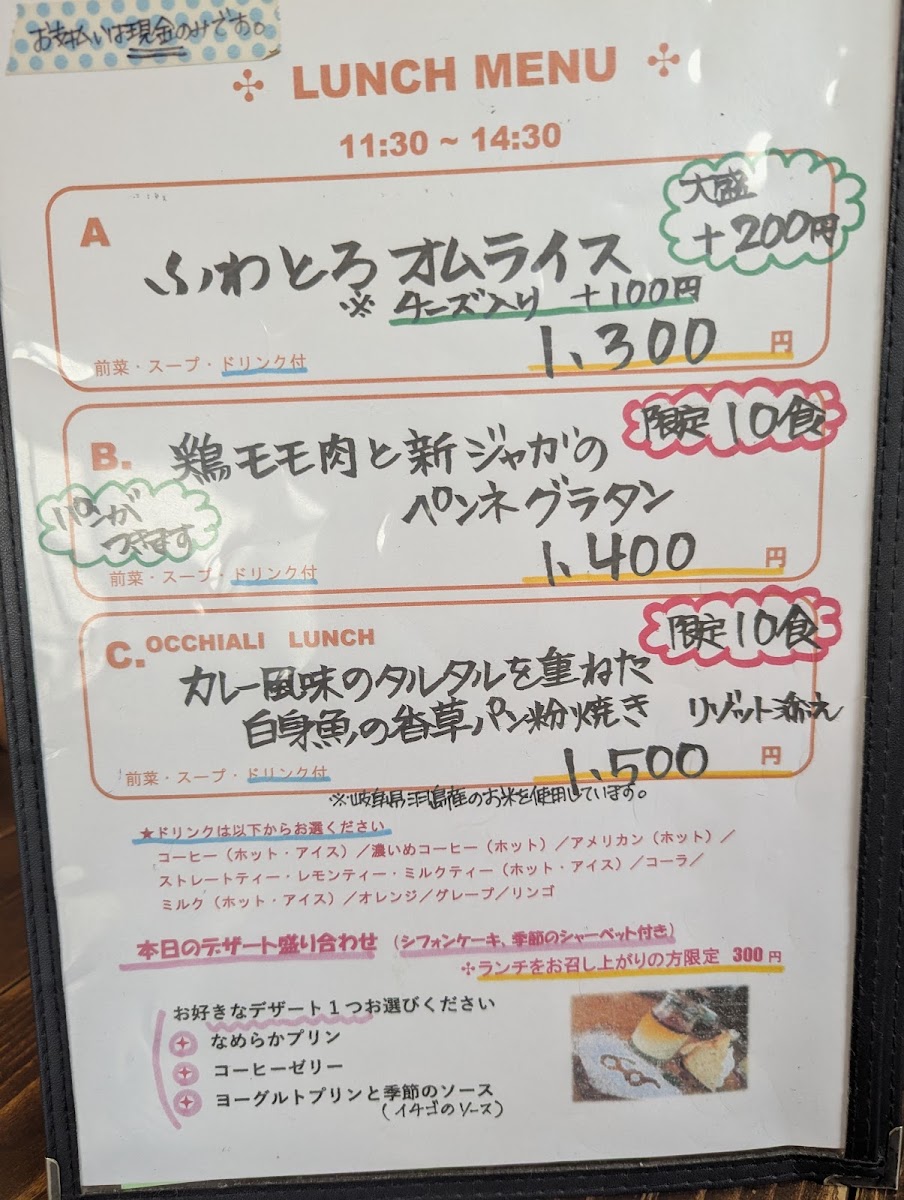 お支払いは現金のみです。
LUNCH MENU
11:30 ~ 14:30
A
大盛
+200円
ふわとろ オムライス
※ チーズ入り +100円
1,300円
前菜・スープ・ドリンク付
限定10食
B. 鶏モモ肉と新ジャガの
ペンネグラタン
パンが
つきます
1,400円
前菜・スープ・ドリンク付
限定10食
C. OCCHIALI LUNCH
カレー風味のタルタルを重ねた
白身魚の香草パン粉焼き リゾット添え
1,500円
前菜・スープ・ドリンク付
※岐阜県羽島産のお米を使用しています。
★ドリンクは以下からお選びください
コーヒー（ホット・アイス）／濃いめコーヒー（ホット）／アメリカン（ホット）／
ストレートティー・レモンティー・ミルクティー（ホット・アイス）／コーラ／
ミルク（ホット・アイス）／オレンジ／グレープ／リンゴ
本日のデザート盛り合わせ（シフォンケーキ、季節のシャーベット付き）
ランチをお召し上がりの方限定 300円
お好きなデザート1つお選びください
なめらかプリン
コーヒーゼリー
ヨーグルトプリンと季節のソース
（イチゴのソース）